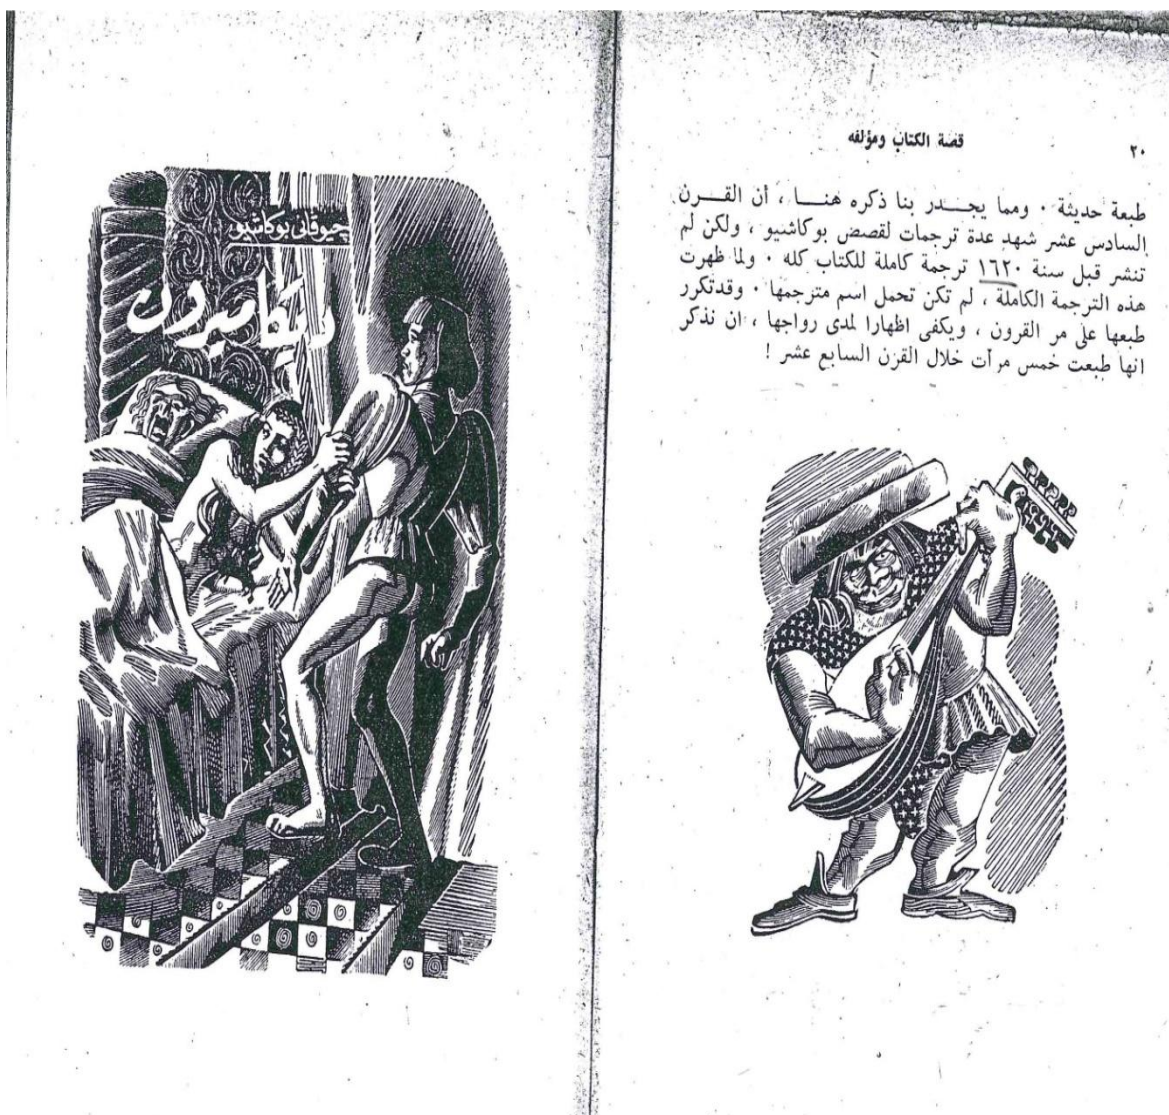 ٢٠
قصة الكتاب ومؤلفه
طبعة حديثة ٠ ومما يجـــدر بنا ذكره هنـــا ، أن القـــرن
السادس عشر شهد عدة ترجمات لقصص بوكاشيو ، ولكن لم
تنشر قبل سنة ١٦٢٠ ترجمة كاملة للكتاب كله ٠ ولما ظهرت
هذه الترجمة الكاملة ، لم تكن تحمل اسم مترجمها ٠ وقدتكرر
طبعها على مر القرون ، ويكفى اظهارا لمدى رواجها ، ان نذكر
انها طبعت خمس مرأت خلال القرن السابع عشر !
چيوڤانى بوكاشيو
ديكاميرون